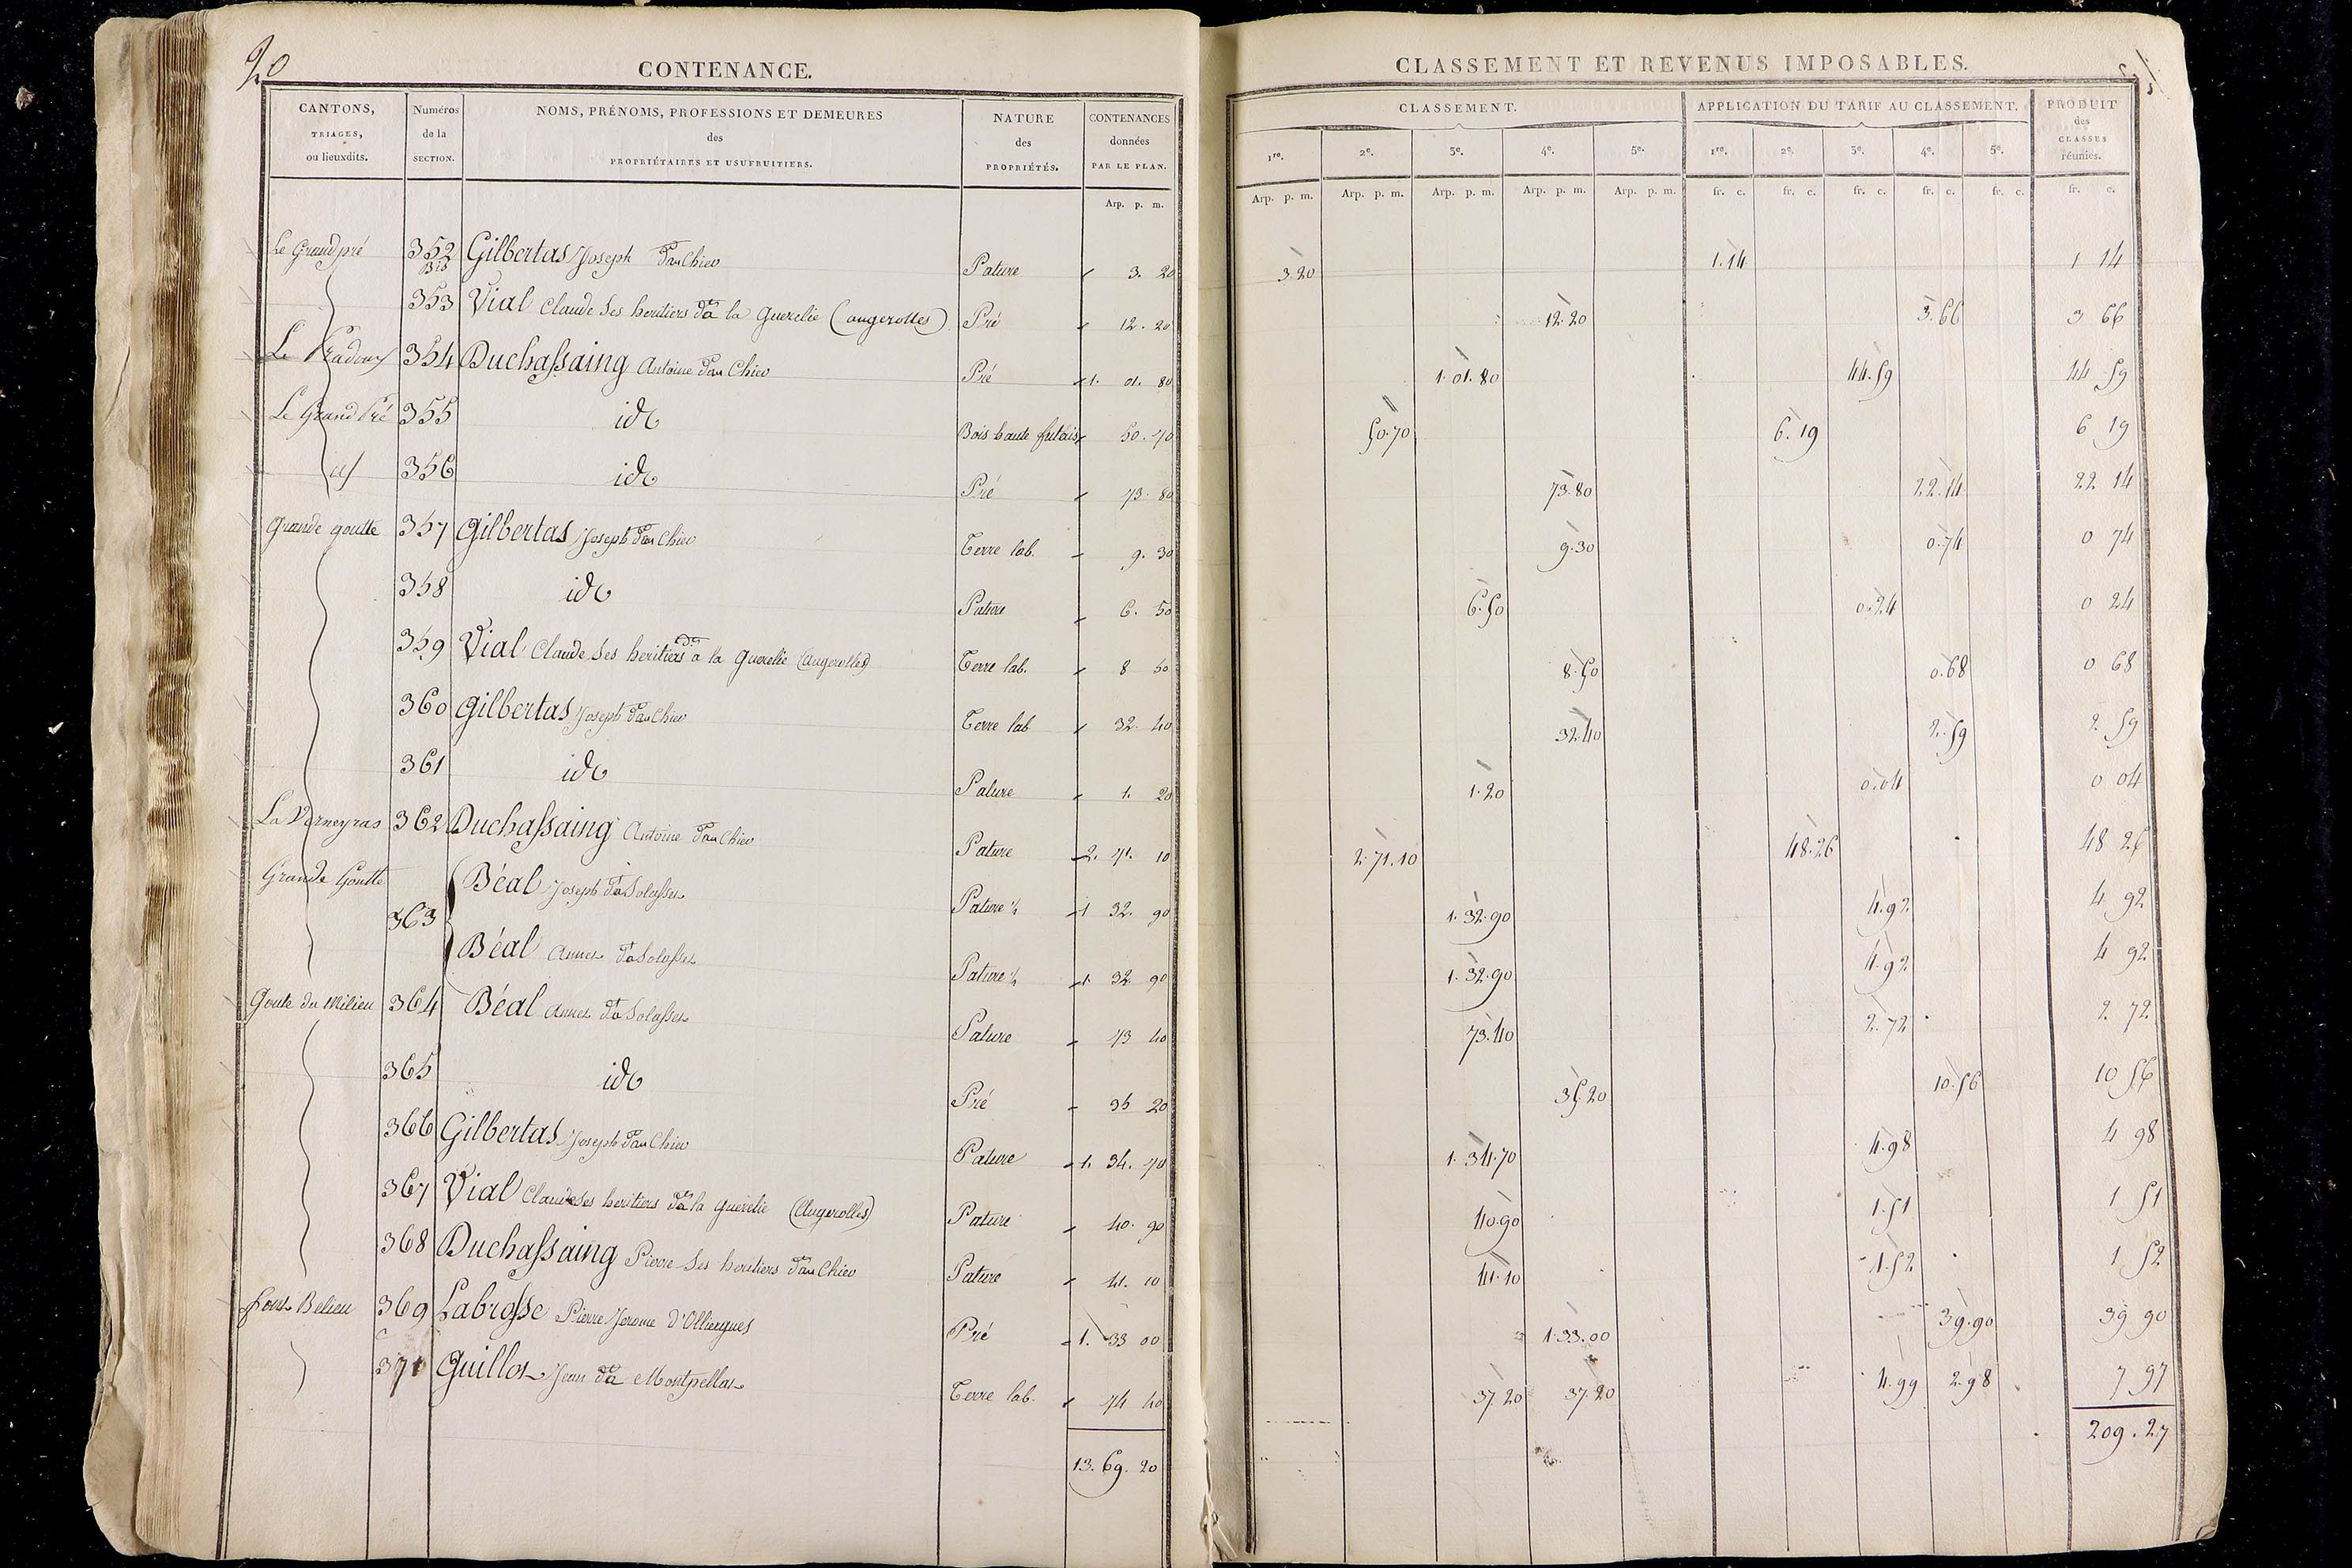 20
CONTENANCE.
CANTONS, TRIAGES, ou lieuxdits. | Numéros de la SECTION. | NOMS, PRÉNOMS, PROFESSIONS ET DEMEURES des PROPRIÉTAIRES ET USUFRUITIERS. | NATURE des PROPRIÉTÉS. | CONTENANCES données PAR LE PLAN.
Arp. p. m.
Le Grand pré 352 Bis Gilbertas Joseph Pature 3. 20
353 Vial Claude Ses heritiers à la Guerelie (augerolles) Pré 12. 20
Le Pradoux 354 Duchassaing Antoine Pré 1. 01. 80
Le Grand Pré 355 id Bois haute futaie 50. 70
id 356 id Pré 73. 80
Grande goutte 357 Gilbertas Joseph Terre lab. 9. 30
358 id Pature 6. 50
359 Vial Claude Ses heritiers à la Guerelie (Augerolles) Terre lab. 8 50
360 Gilbertas Joseph Terre lab 32. 40
361 id Pature 1. 20
La Verneyras 362 Duchassaing Antoine Pature 2. 71. 10
Grande Goutte 363 Béal Joseph Pature ½ 1 32. 90
Béal Annet Pature ½ 1. 32 90
Goute du Milieu 364 Béal Annet Pature 73 40
365 id Pré 35 20
366 Gilbertas Joseph Pature 1. 34. 70
367 Vial Claude Ses heritiers à la Guerelie (Augerolles) Pature 40. 90
368 Duchassaing Pierre Ses heritiers Pature 41. 10
369 Labrosse Pierre Jerome d'Olliergues Pré 1. 33 00
371 Jean Terre lab. 74 40
13. 69. 20
CLASSEMENT ET REVENUS IMPOSABLES.
CLASSEMENT. | APPLICATION DU TARIF AU CLASSEMENT. | PRODUIT des CLASSES réunies.
1re. 2e. 3e. 4e. 5e. 1re. 2e. 3e. 4e. 5e.
Arp. p. m. Arp. p. m. Arp. p. m. Arp. p. m. Arp. p. m. fr. c. fr. c. fr. c. fr. c. fr. c. fr. c.
3.20 1.14 1 14
12.20 3.66 3 66
1.01.80 44.59 44 59
50.70 6.19 6 19
73.80 22.14 22 14
9.30 0.74 0 74
6.50 0.24 0 24
8.50 0.68 0 68
32.40 2.59 2. 59
1.20 0.04 0 04
2.71.10 48.26 48 26
1.32.90 4.92 4 92
1.32.90 4.92 4 92
73.40 2.72 2 72
35.20 10.56 10 56
1.34.70 4.98 4 98
40.90 1.51 1 51
41.10 1.52 1 52
1.33.00 39.90 39 90
37.20 37.20 4.99 2.98 7 97
209.27